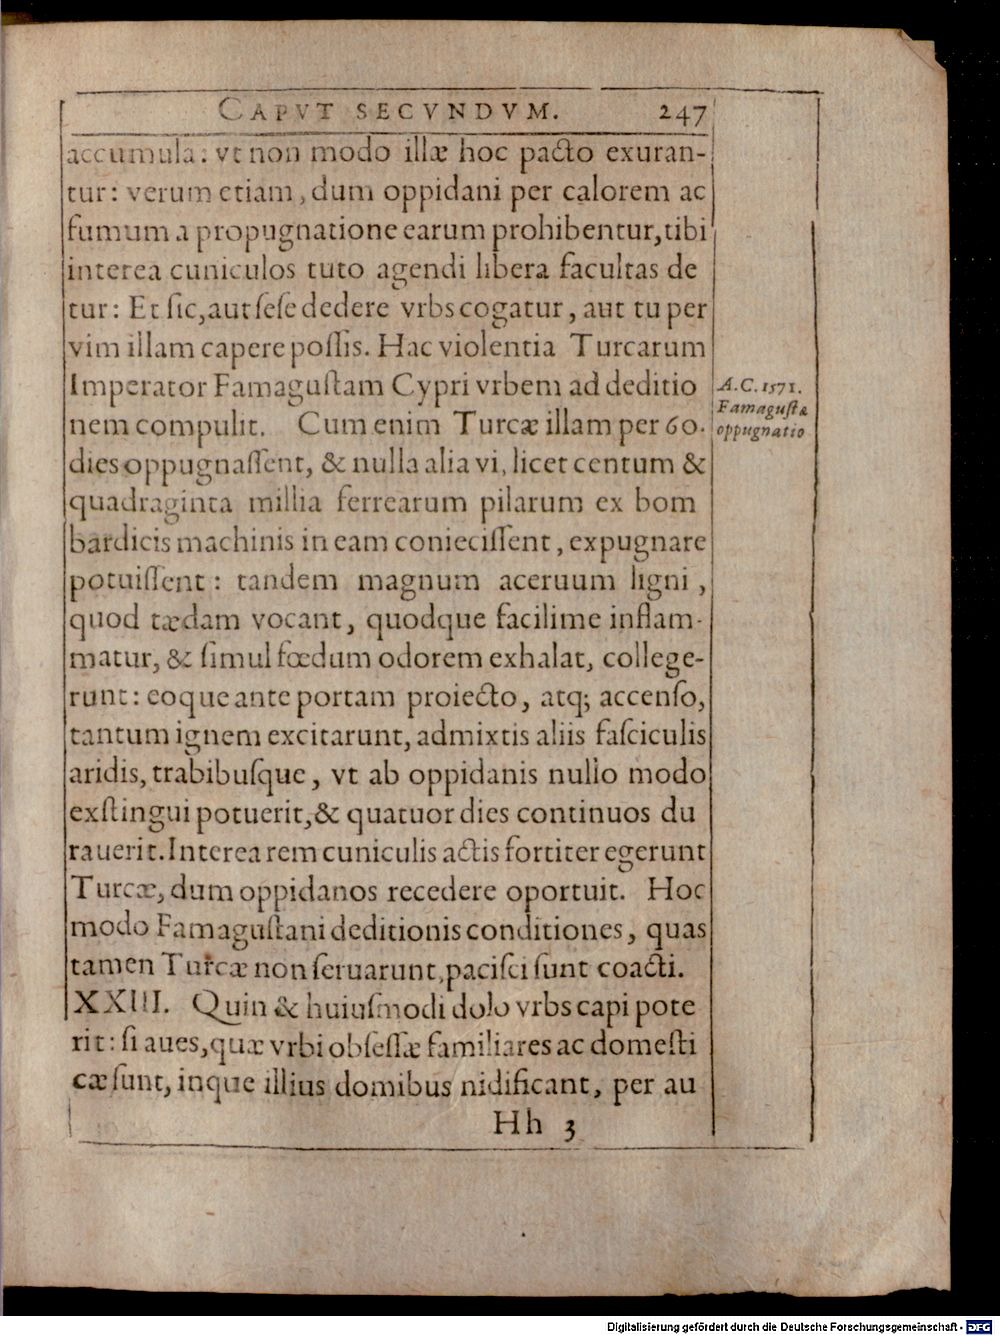 CAPVT SECVNDVM. 247
accumula: vt non modo illæ hoc pacto exuran-
tur: verum etiam, dum oppidani per calorem ac
fumum a propugnatione earum prohibentur, tibi
interea cuniculos tuto agendi libera facultas de
tur: Et ſic, aut ſeſe dedere vrbs cogatur, aut tu per
vim illam capere poſſis. Hac violentia Turcarum
Imperator Famaguſtam Cypri vrbem ad deditio
nem compulit. Cum enim Turcæ illam per 60.
dies oppugnaſſent, & nulla alia vi, licet centum &
quadraginta millia ferrearum pilarum ex bom
bardicis machinis in eam conieciſſent, expugnare
potuiſſent: tandem magnum aceruum ligni,
quod tædam vocant, quodque facilime inflam-
matur, & ſimul fœdum odorem exhalat, college-
runt: eoque ante portam proiecto, atq; accenſo,
tantum ignem excitarunt, admixtis aliis faſciculis
aridis, trabibuſque, vt ab oppidanis nullo modo
exſtingui potuerit, & quatuor dies continuos du
rauerit. Interea rem cuniculis actis fortiter egerunt
Turcæ, dum oppidanos recedere oportuit. Hoc
modo Famaguſtani deditionis conditiones, quas
tamen Turcæ non ſeruarunt, paciſci ſunt coacti.
XXIII. Quin & huiuſmodi dolo vrbs capi pote
rit: ſi aues, quæ vrbi obſeſſæ familiares ac domeſti
cæ ſunt, inque illius domibus nidificant, per au
Hh 3
A.C. 1571.
Famaguſtæ
oppugnatio
Digitalisierung gefördert durch die Deutsche Forschungsgemeinschaft - DFG